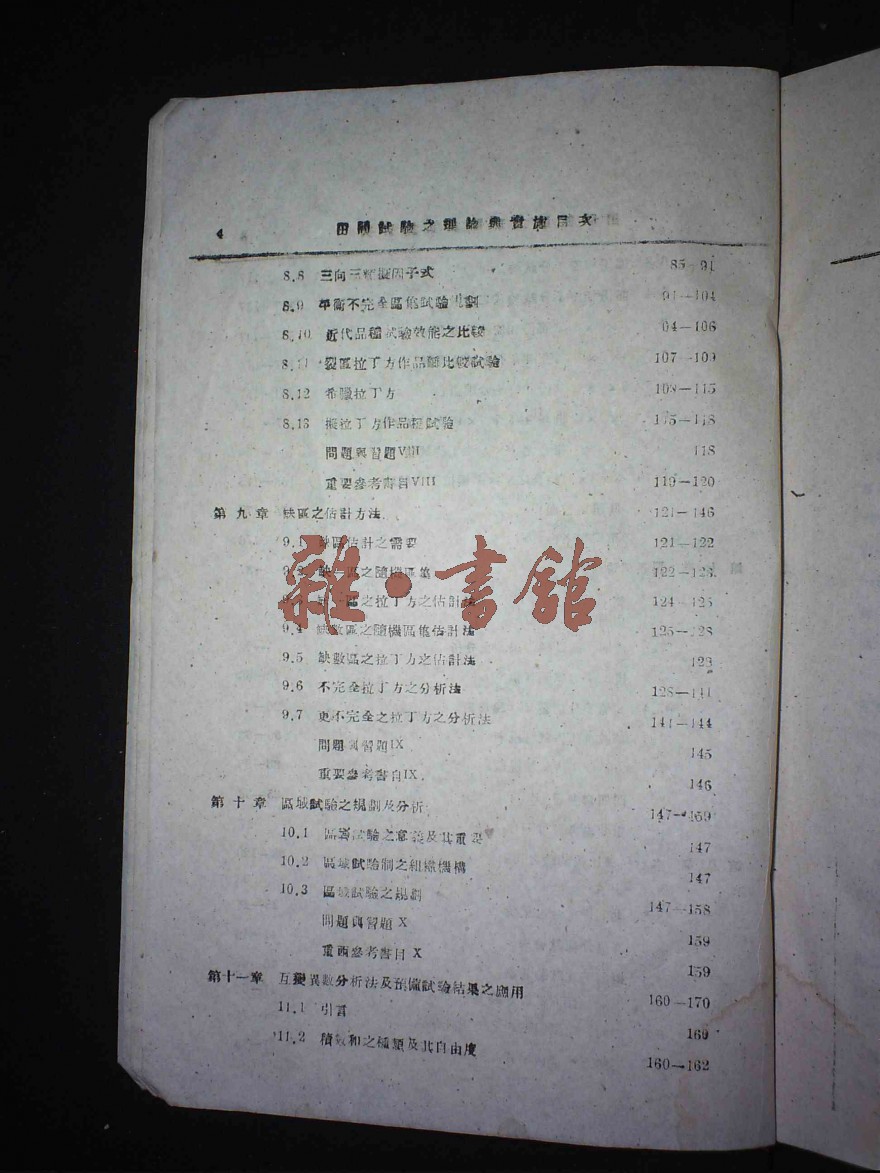 4 田間試驗之理論與實施目次
8.8 三向三種擬因子式 85-91
8.9 平衡不完全區集試驗規劃 91—104
8.10 近代品種試驗效能之比較 04—106
8.11 裂區拉丁方作品種比較試驗 107-109
8.12 希臘拉丁方 108—115
8.13 擬拉丁方作品種試驗 115—118
問題與習題VIII 118
重要參考書目VIII 119—120
第九章 缺區之估計方法 121-146
9.1 缺區估計之需要 121—122
缺一區之隨機區集 122—123
區之拉丁方之估計法 124—125
9.4 缺數區之隨機區集估計法 125—128
9.5 缺數區之拉丁方之估計法 128
9.6 不完全拉丁方之分析法 128—141
9.7 更不完全之拉丁方之分析法 141—144
問題與習題IX 145
重要參考書目IX 146
第十章 區域試驗之規劃及分析 147—159
10.1 區域試驗之意義及其重要 147
10.2 區域試驗制之組織機構 147
10.3 區域試驗之規劃 147—158
問題與習題 X 159
重要參考書目 X 159
第十一章 互變異數分析法及預備試驗結果之應用 160—170
11.1 引言 160
11.2 積數和之種類及其自由度 160—162
雜·書館